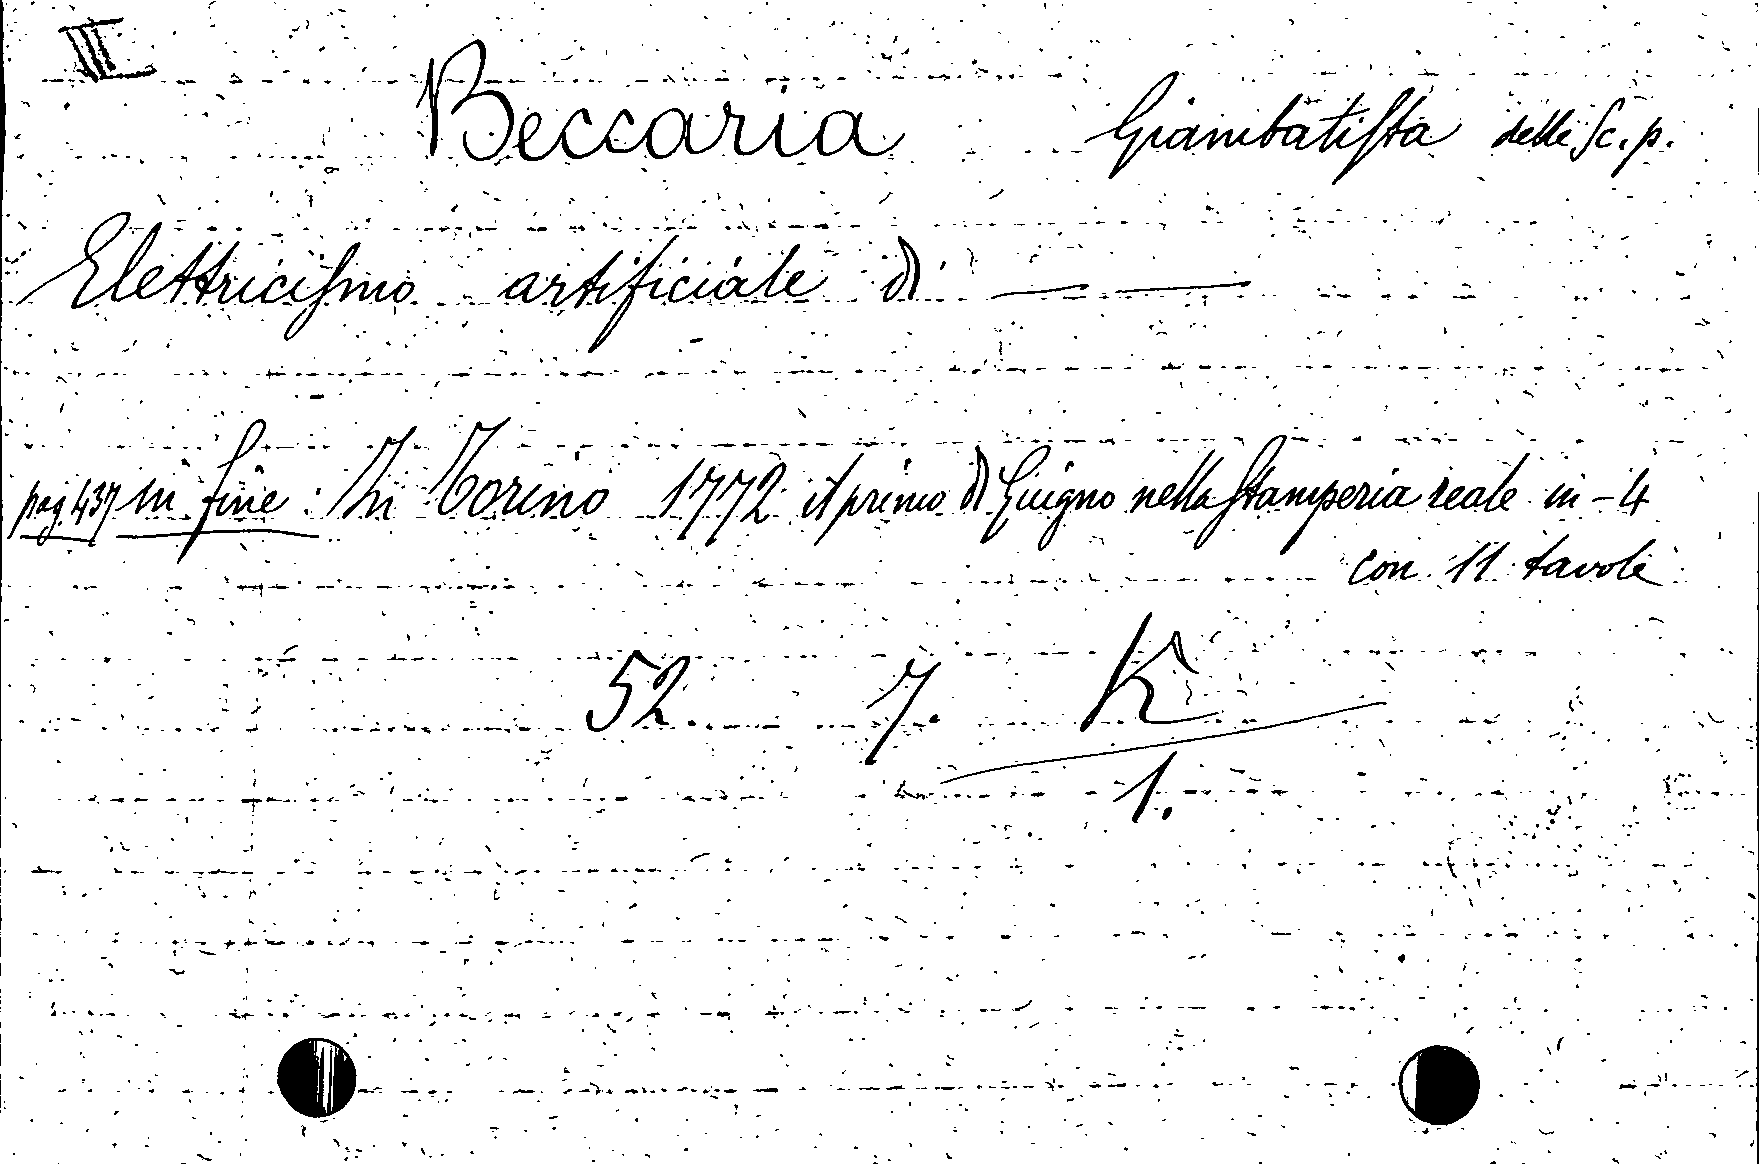 III
Beccaria Giambatista delle Sc. p.
Elettricismo artificiale di — —
pag. 437 in fine: In Torino 1772 il primo di Giugno nella Stamperia reale in-4
con 11 tavole
52. 7. K
1.